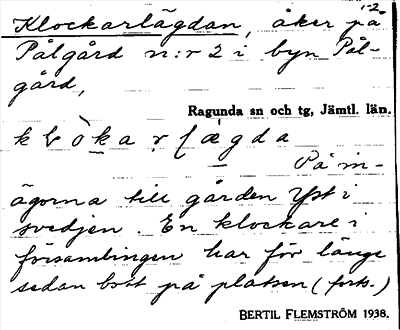 1-2.
Klockarlägdan, åker på
Pålgård n:r 2 i byn Pål-
gård,
Ragunda sn och tg, Jämtl. län.
På in-
ägorna till gården Yst i
svedjen. En klockare i
församlingen har för länge
sedan bott på platsen (forts.)
BERTIL FLEMSTRÖM 1938.